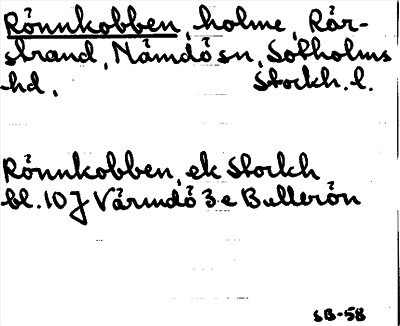 Rönnkobben, holme, Rör-
strand, Nämdö sn, Sotholms
hd, Stockh. l.
Rönnkobben, ek Stockh
bl. 10 J Värmdö 3 e Bullerön
SB-58